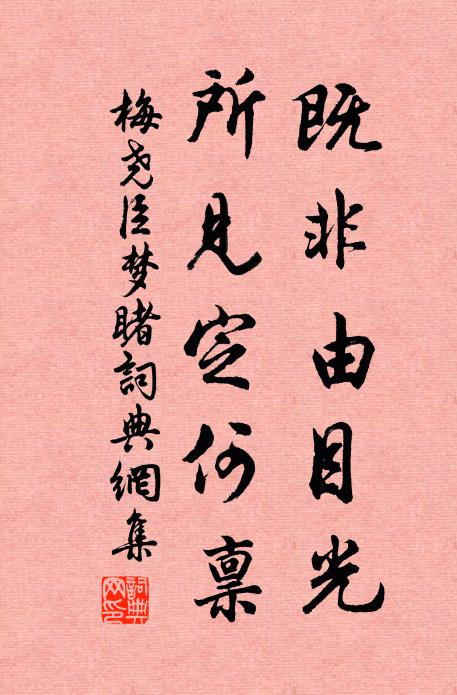 既非由目光
所見定何稟
梅尧臣梦睹詞典網集
詞典网印